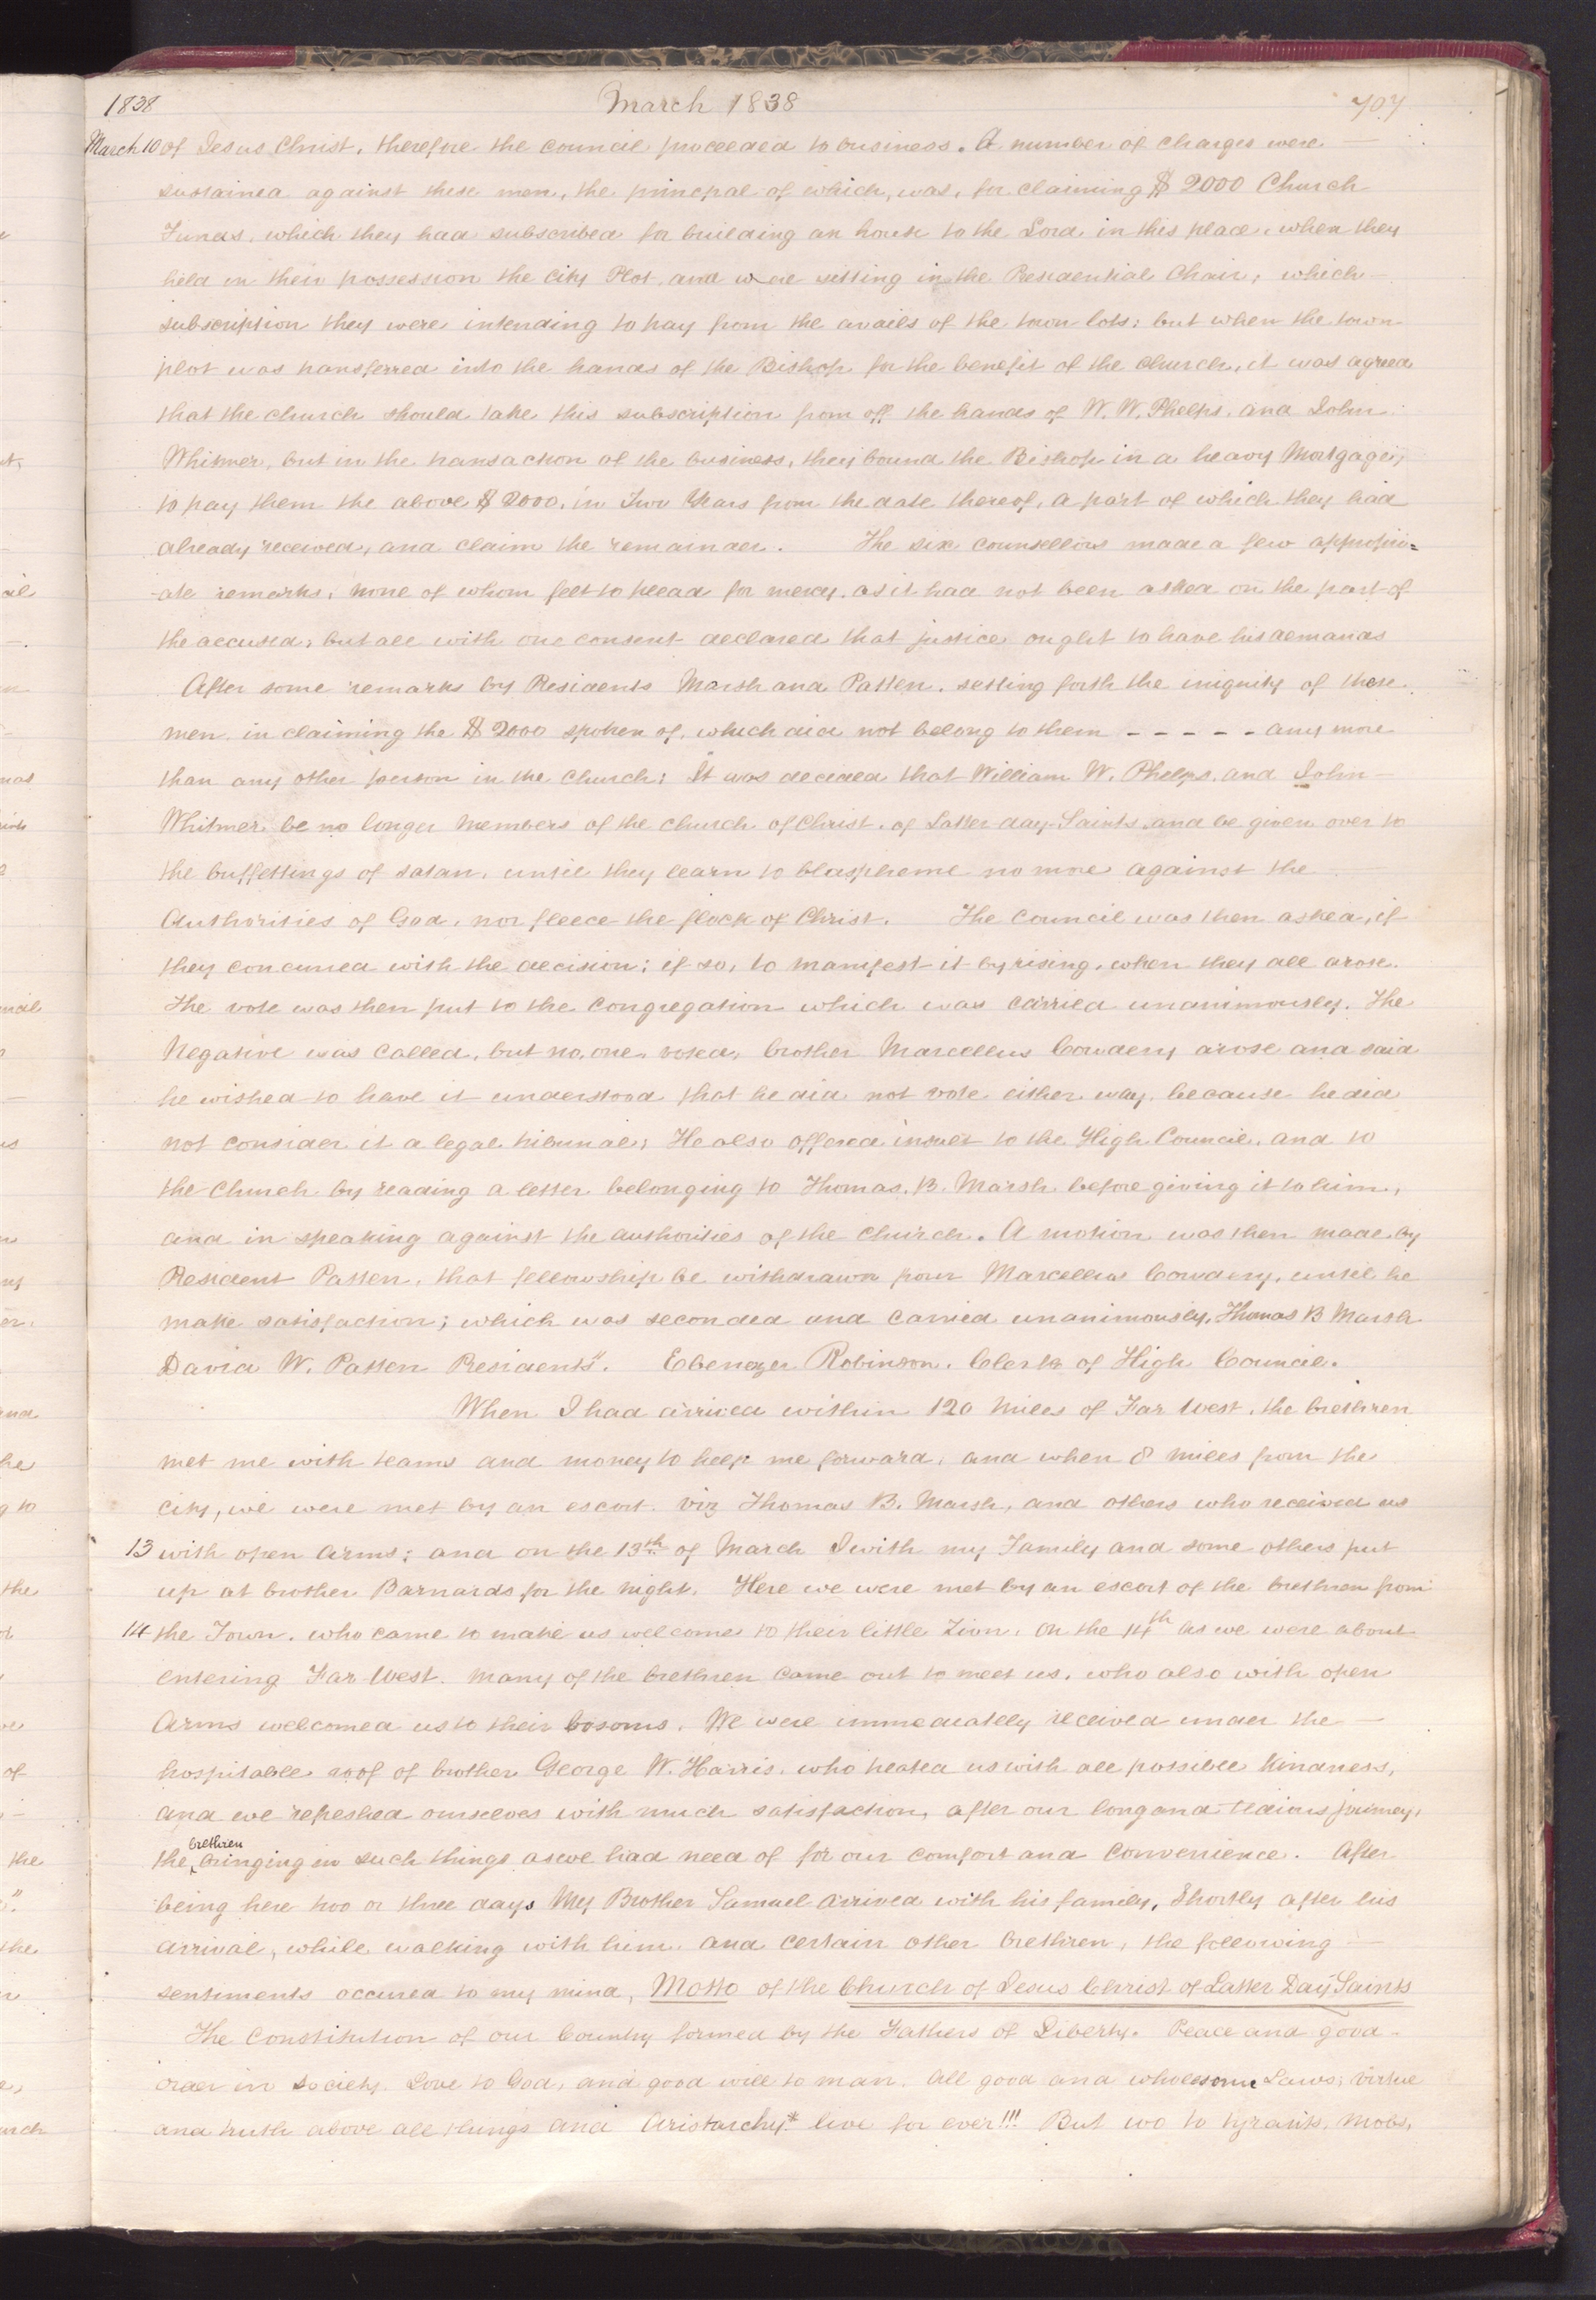 1838 March 1838 707
March 10 of Jesus Christ, therefore the council proceeded to business. A number of charges were —
sustained against these men, the principal of which, was, for claiming $2000 Church
Funds, which they had subscribed for building an house to the Lord in this place, when they
held in their possession the city Plot, and were sitting in the Presidential Chair, which —
subscription they were intending to pay from the avails of the town lots; but when the town
plot was transferred into the hands of the Bishop for the benefit of the church, it was agreed
that the church should take this subscription from off the hands of W. W. Phelps. and John
Whitmer, but in the transaction of the business, they bound the Bishop in a heavy Mortgage,
to pay them the above $2000, in Two Years from the date thereof, a part of which they had
already received, and claim the remainder. The six counsellors made a few appropri=
-ate remarks; none of whom felt to plead for mercy, as it had not been asked on the part of
the accused; but all with one consent declared that justice ought to have his demands
After some remarks by Presidents Marsh and Patten, setting forth the iniquity of those
men in claiming the $2000 spoken of, which did not belong to them - - - - - any more
than any other person in the church; It was decided that William W. Phelps, and John —
Whitmer be no longer Members of the church of Christ, of Latter day Saints, and be given over to
the buffettings of satan, until they learn to blaspheme no more against the
Authorities of God, nor fleece the flock of Christ. The council was then asked, if
they concurred with the decision; if so, to manifest it by rising, when they all arose.
The vote was then put to the congregation which was carried unanimously. The
Negative was called, but no, one, voted, brother Marcellus Cowdery arose and said
he wished to have it understood that he did not vote either way, because he did
not consider it a legal tribunal; He also offered insult to the High Council, and to
the Church by reading a letter belonging to Thomas, B. Marsh before giving it to him,
and in speaking against the authorities of the church. A motion was then made by
President Patten, that fellowship be withdrawn from Marcellus Cowdery, until he
make satisfaction; which was seconded and carried unanimously, Thomas B Marsh
David W. Patten Presidents". Ebenezer Robinson. Clerk of High Council.
When I had arrived within 120 Miles of Far West, the brethren
met me with teams and money to help me forward, and when 8 miles from the
city, we were met by an escort. viz Thomas B. Marsh, and others who received us
13 with open arms; and on the 13th of March I with my Family and some others put
up at brother Barnards for the night. Here we were met by an escort of the brethren from
14 the Town, who came to make us welcome to their little Zion. On the 14th as we were about
entering Far West. Many of the brethren came out to meet us, who also with open
Arms welcomed us to their bosoms. We were immediately received under the —
hospitable roof of brother George W. Harris, who treated us with all possible kindness,
and we refreshed ourselves with much satisfaction, after our long and tedious journey,
the brethren bringing in such things as we had need of for our comfort and convenience. After
being here two or three days My Brother Samuel arrived with his family, Shortly after his
arrival, while walking with him, and certain other brethren, the following —
sentiments occured to my mind, Motto of the Church of Jesus Christ of Latter Day Saints
The Constitution of our Country formed by the Fathers of Liberty. Peace and good
order in society. Love to God, and good will to man. All good and wholesome Laws; virtue
and truth above all things and Aristarchy* live for ever!!! But wo to tyrants, Mobs,